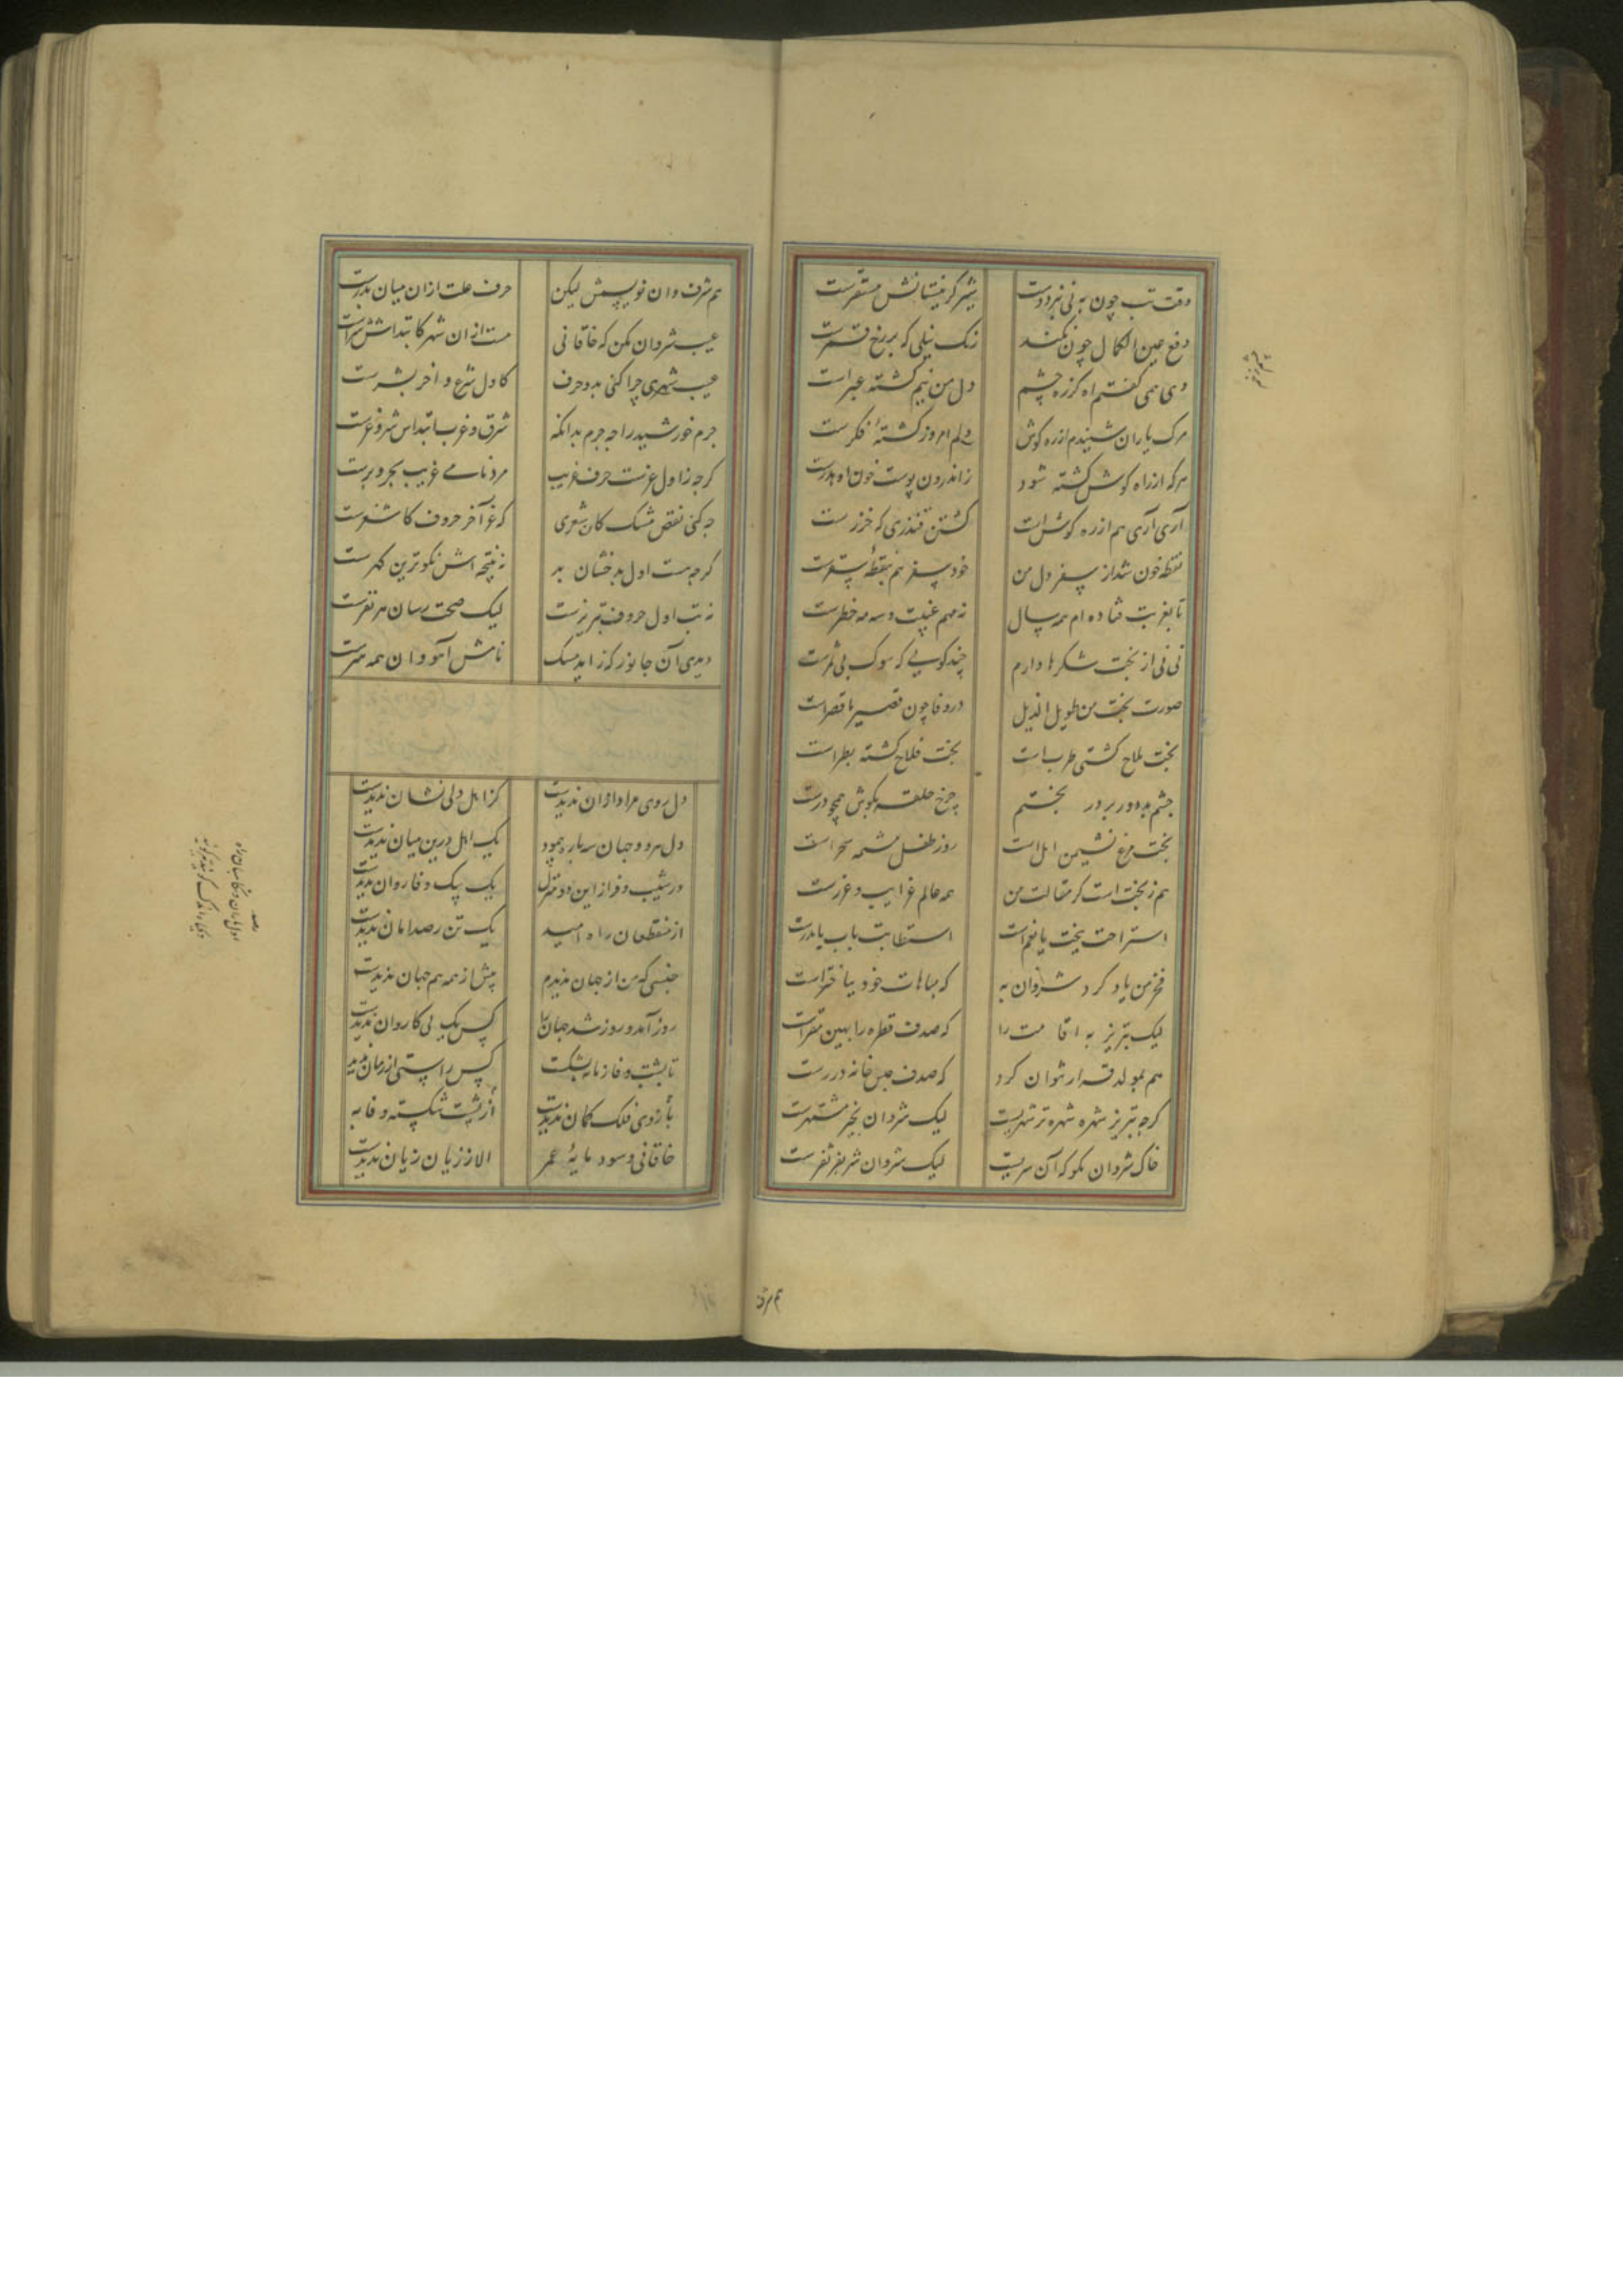 وقت تب چون به نی نبرد دست شیر کر نیستانش مستقرست
دفع عین الکمال چون نکند رنک نیلی که بر رخ قمرست
دی همی کفتم اه کزره چشم دل من نیم کشته عبراست
مرک یاران شنیدم ازره کوش دلم امروز کشتهٔ فکرست
هرکه ازراه کوش کشته شود زاندرون پوست خون اه هدرست
آری آری هم ازره کوش است کشتن قندزی که خزرست
نقطه خون شداز سفر دل من خود سفر هم بنقطهٔ سقرست
تا بغربت فتاده ام همه سال نه مهم غیبت وسه مه حضرست
نی نی از بخت شکرها دارم چند کویی که سوک بی ثمرست
صورت بخت من طویل الذیل دروفا چون قصیر با قصراست
بخت ملاح کشتی طرب است بخت فلاح کشته بطراست
چشم بد دور بر در بختم چرخ حلقه بکوش همچو درست
بخت مرغ نشیمن امل است روز طفل مشیمه سحراست
هم زبخت است کز مقالت من همه عالم غرایب و غررست
استراحت ببخت یا نعم است استطابت بآب یا مدرست
فخر من یاد کرد شروان به که مباهات خود بباختراست
لیک تبریز به اقامت را که صدف قطره را بهین مقراست
هم بمولد قرار نتوان کرد که صدف حبس خانه دررست
کرچه تبریز شهره تر شهریست لیک شروان بخیر مشتهرست
خاک شروان مکو که آن سریست لیک شروان شریفتر ثغرست
هم شرف
هم شرف وان خویش لیکن حرف علت ازان میان بدرست
عیب شروان مکن که خاقانی هست ازان شهر کابتداش شراست
عیب شهری چرا کنی بدو حرف کاول شرع و اخر بشرست
جرم خورشید را چه جرم بدانکه شرق و غرب ابتداس شر و غرست
کرچه ز اول غرست حرف غریب مرد نامی غریب بحر و برست
چه کنی نقص مشک کاشغری که غر آخر حروف کاشغرست
کرچه هست اول بدخشان بد نه نتیجه اش نکوترین کهرست
نه تب اول حروف تبریزست لیک صحت رسان هر نفرست
دیدی آن جانور که زاید مسک نامش آهو و ان همه هنرست
دل روی مراد ازان ندیدست کز اهل دلی نشان ندیدست
دل هر دو جهان سه باره پیمود یک اهل درین میان ندیدست
در شیب و فراز این دو منزل یک پیک وفا روان ندیدست
از منقطعان راه امید یک تن رصد امان ندیدست
جنسی که من از جهان ندیدم پیش از همه هم جهان ندیدست
روز آمد و روز شد جهان را کس یک پی کاروان ندیدست
تا پشت وفا زمانه بشکست کس راستی از زمان ندیدست
بازوی فلک کمان ندیدست از پشت شکسته وفا به
خاقانی و سود مایهٔ عمر الا ز زیان زیان ندیدست